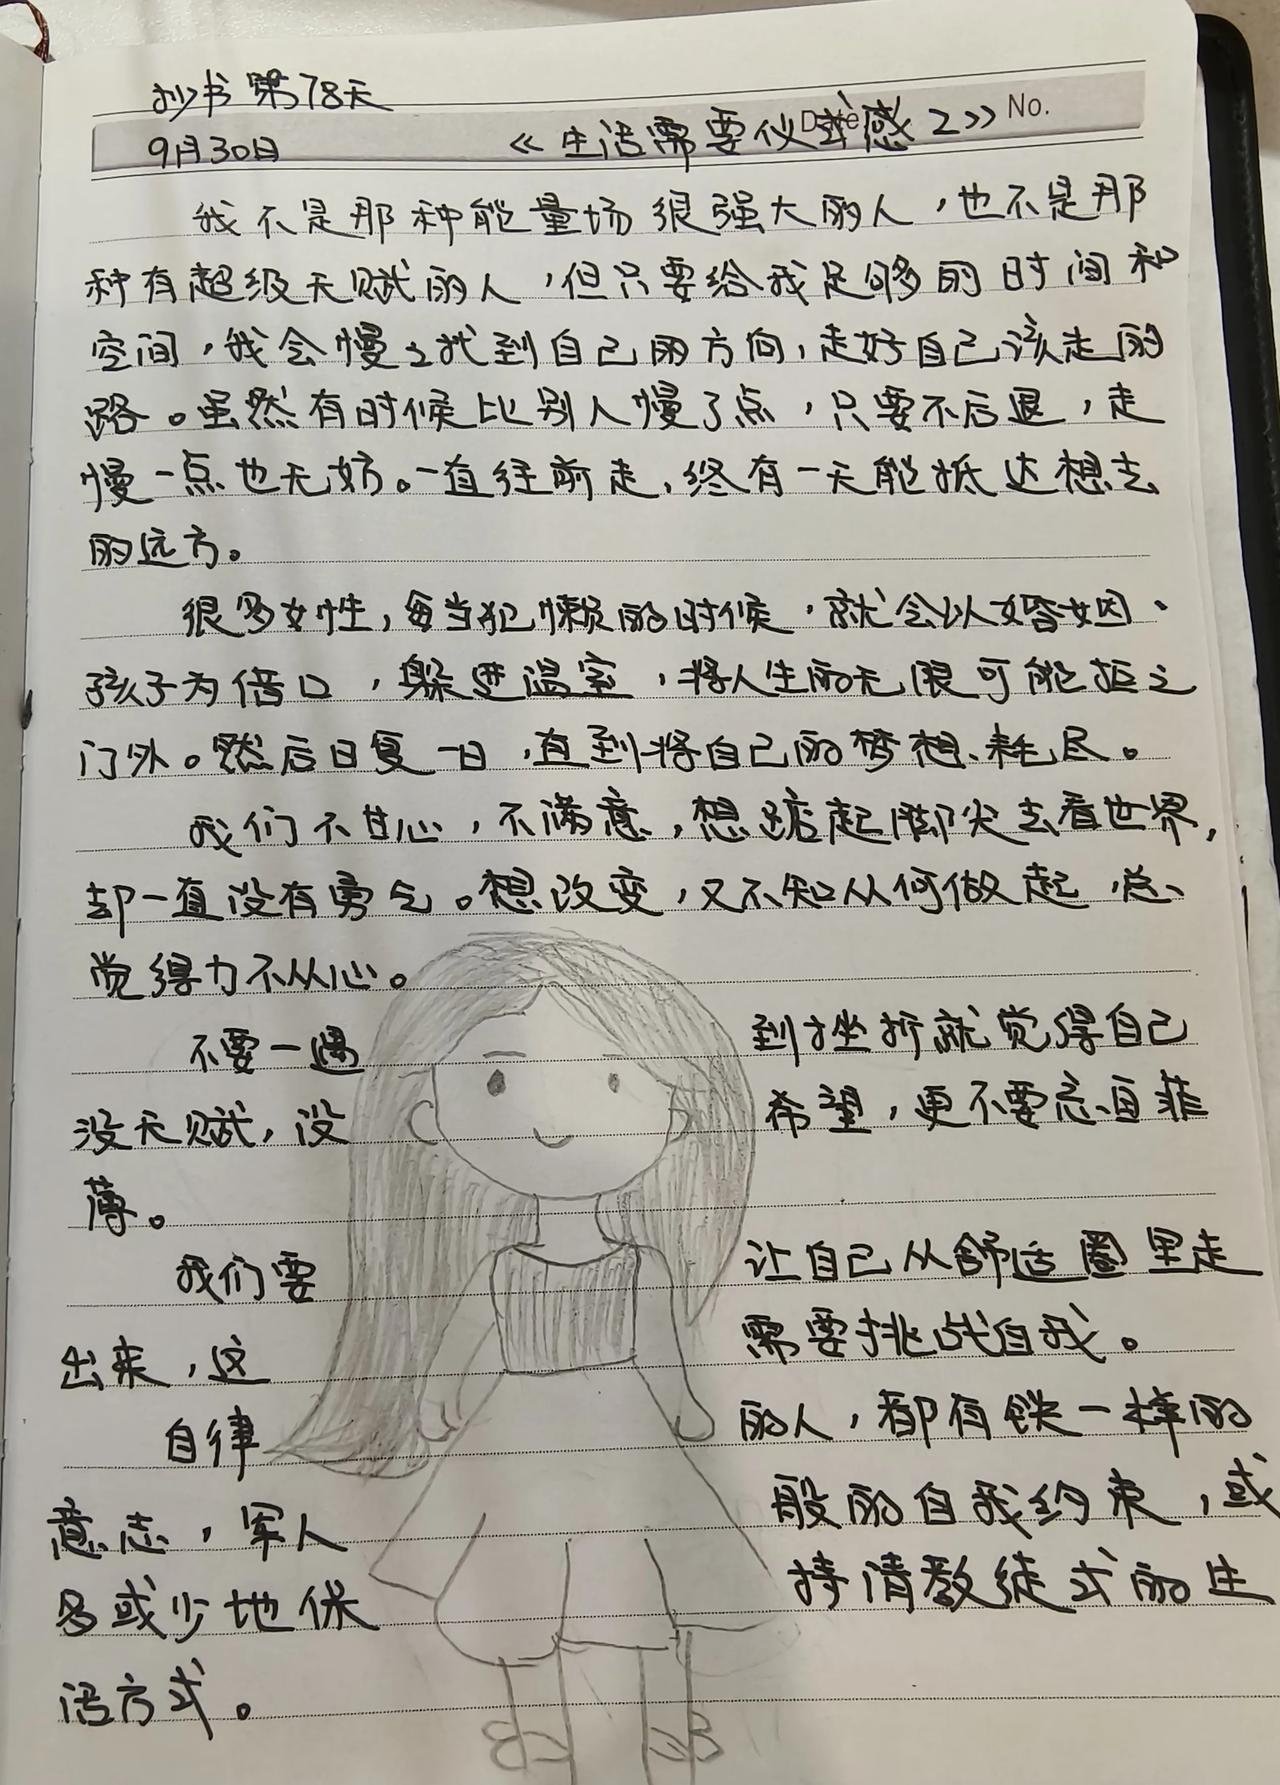 抄书第78天
Date No.
9月30日 《生活需要仪式感2》
我不是那种能量场很强大的人，也不是那
种有超级天赋的人，但只要给我足够的时间和
空间，我会慢々找到自己的方向，走好自己该走的
路。虽然有时候比别人慢了点，只要不后退，走
慢一点也无妨。一直往前走，终有一天能抵达想去
的远方。
很多女性，每当犯懒的时候，就会以婚姻、
孩子为借口，躲进温室，将人生的无限可能拒之
门外。然后日复一日，直到将自己的梦想耗尽。
我们不甘心，不满意，想踮起脚尖去看世界，
却一直没有勇气。想改变，又不知从何做起，总
觉得力不从心。
不要一遇到挫折就觉得自己
没天赋，没希望，更不要忘自菲
薄。
我们要让自己从舒适圈里走
出来，这需要挑战自我。
自律的人，都有铁一样的
意志，军人般的自我约束，或
多或少地保持清教徒式的生
活方式。